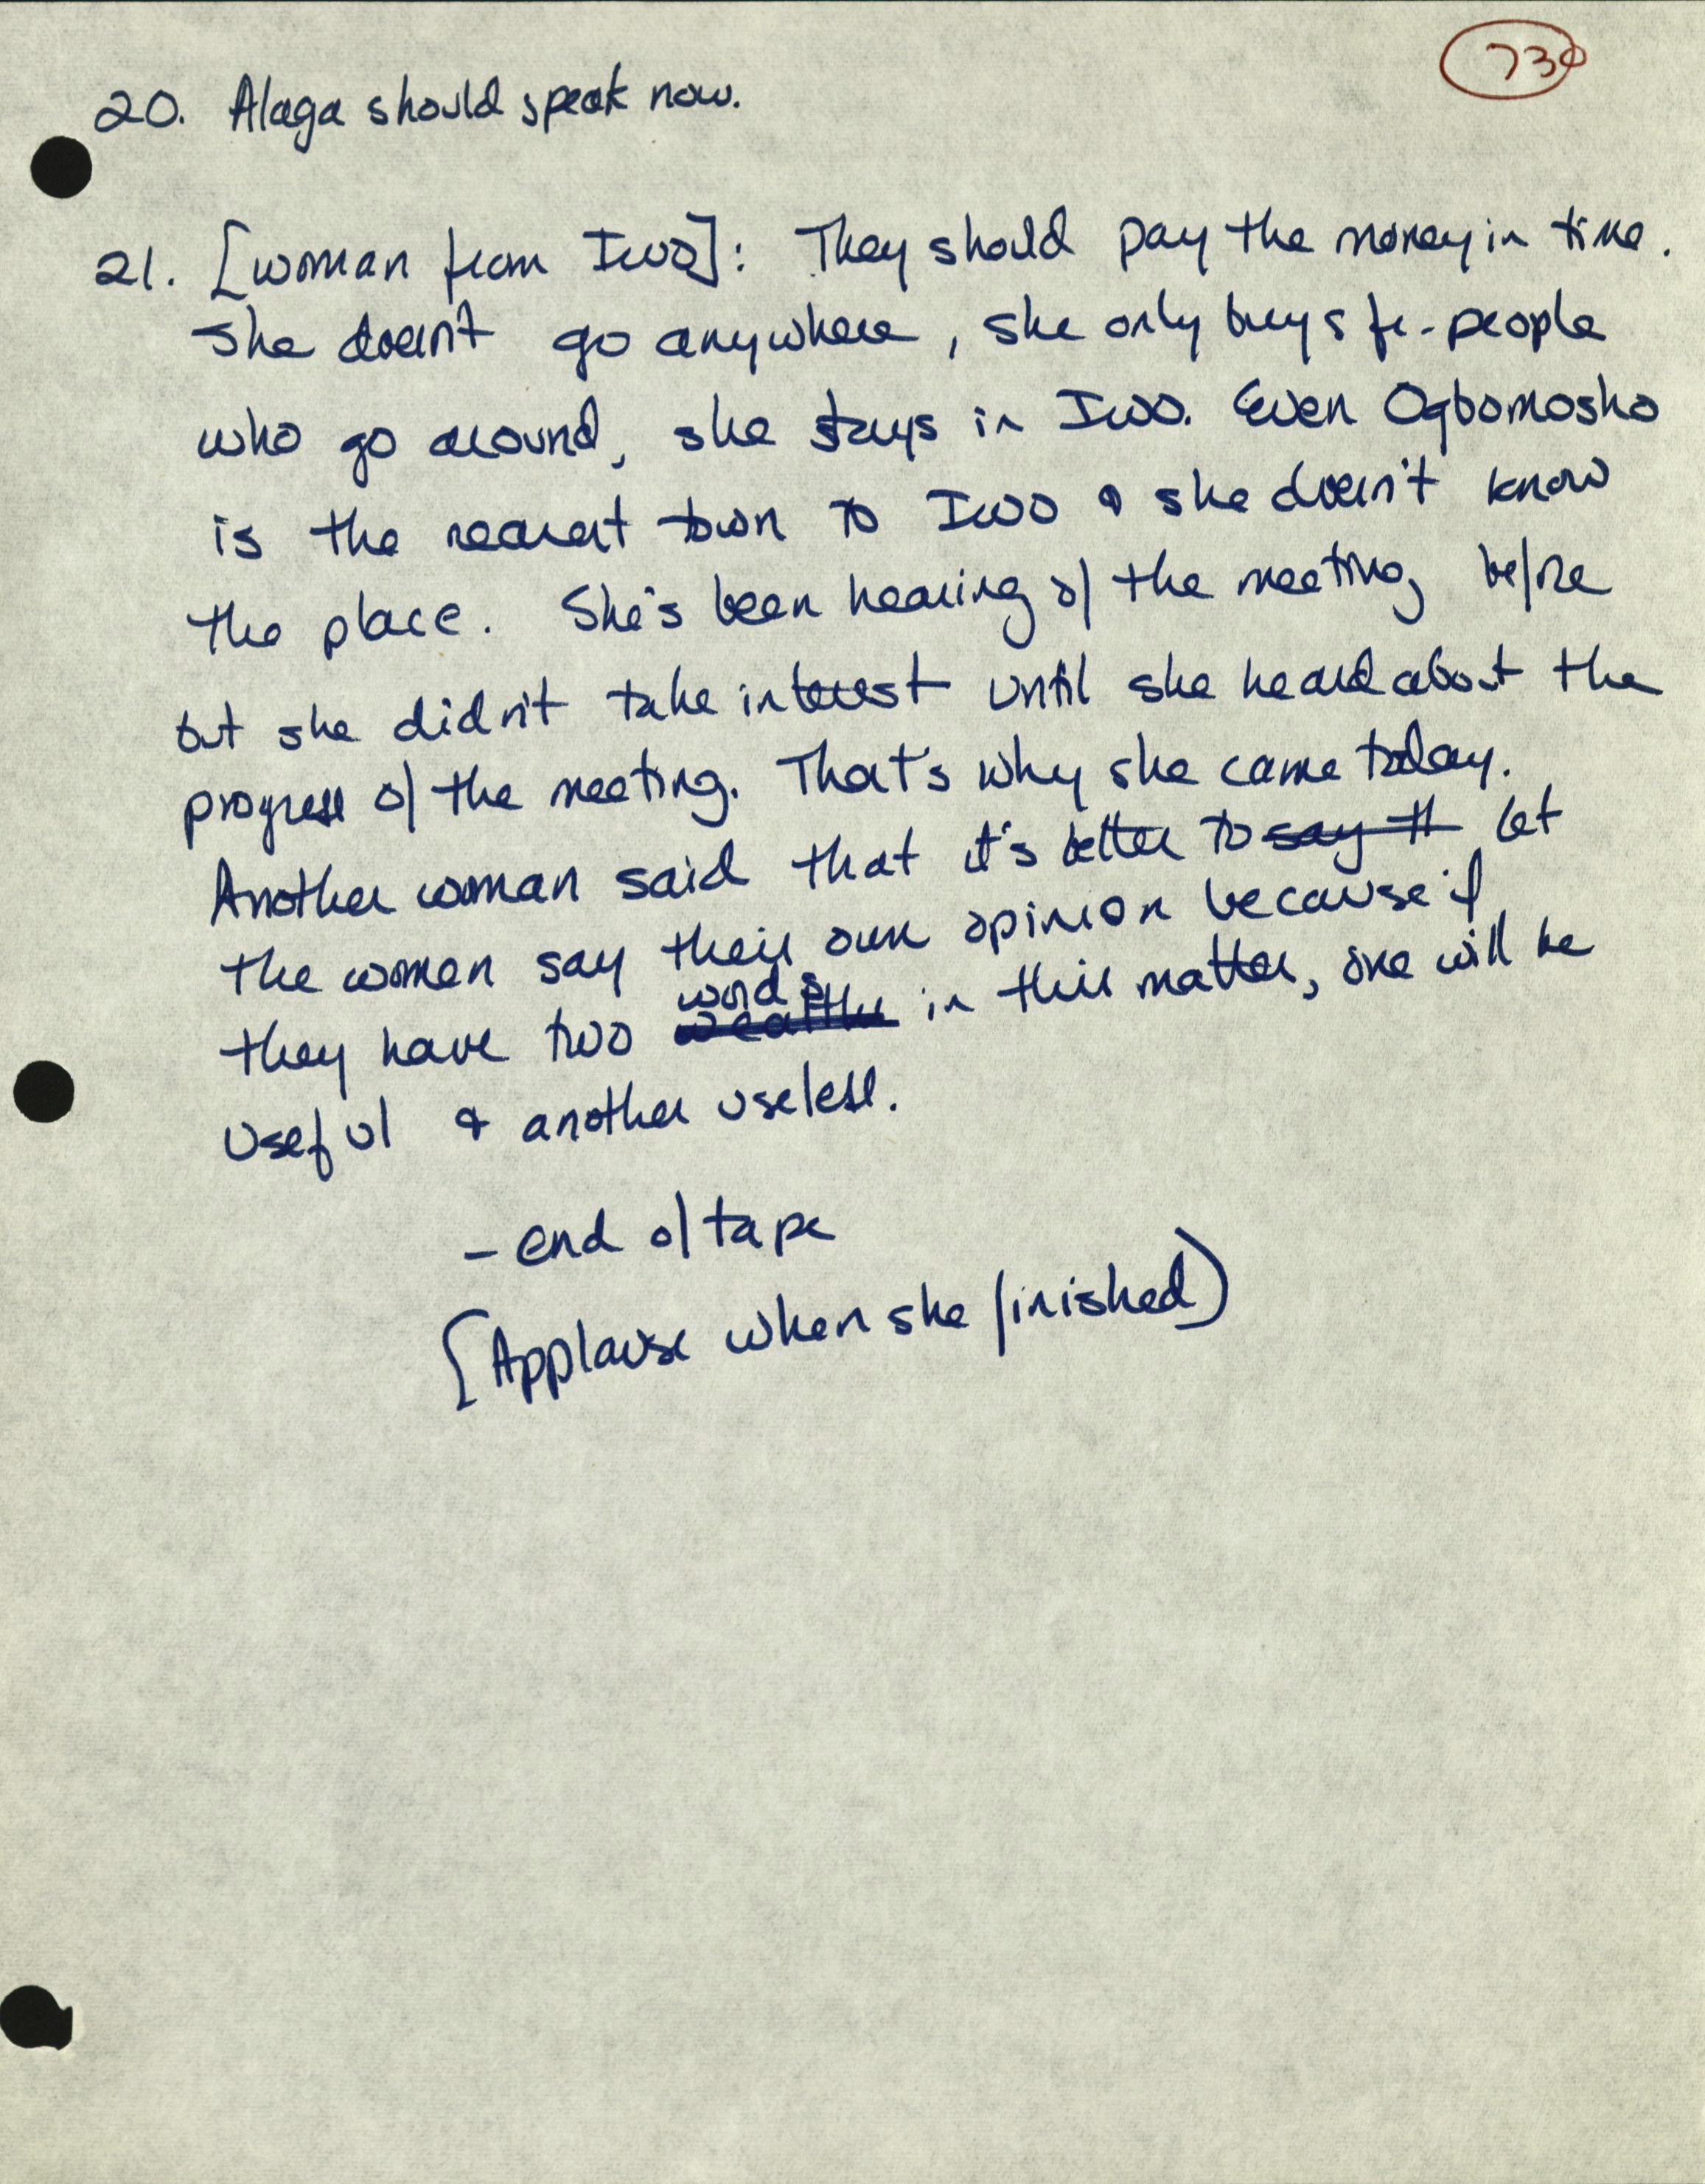 730
20. Alaga should speak now.
21. [woman from Iwo]: They should pay the money in time.
She doesn't go anywhere, she only buys fr. people
who go around, she stays in Iwo. Even Ogbomosho
is the nearest town to Iwo & she doesn't know
the place. She's been hearing of the meeting before
but she didn't take interest until she heard about the
progress of the meeting. That's why she came today.
Another woman said that it's better to say th let
the women say their own opinion because if
words
they have two in this matter, one will be
useful & another useless.
- end of tape
[Applause when she finished)